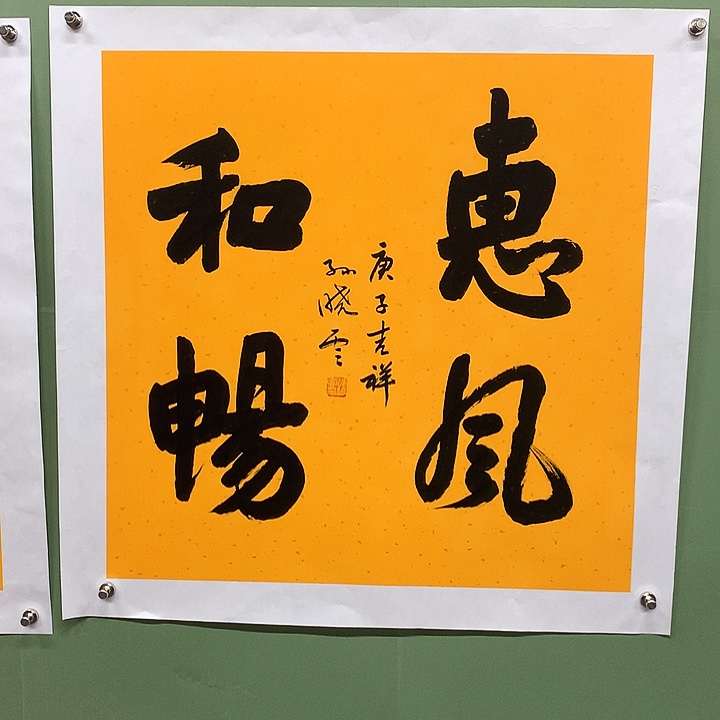 惠風
和暢
庚子吉祥
孙晓云